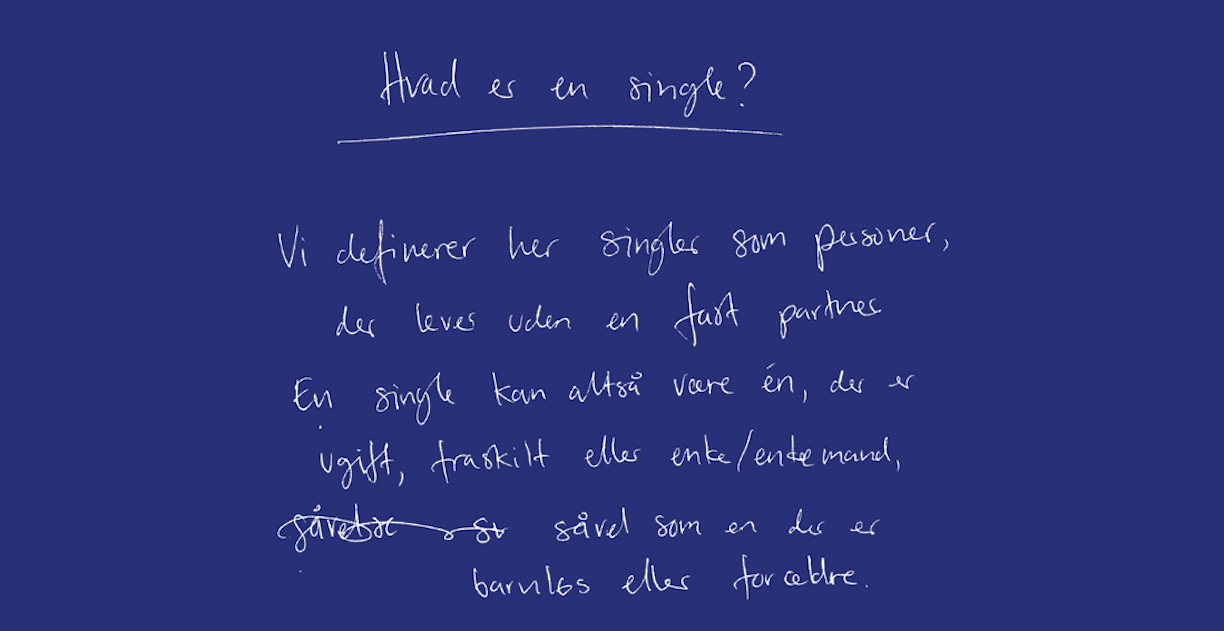 Hvad er en single?
Vi definerer her singler som personer,
der lever uden en fast partner
En single kan altså være én, der er
ugift, fraskilt eller enke/enkemand,
såvel som en der er
barnløs eller forældre.